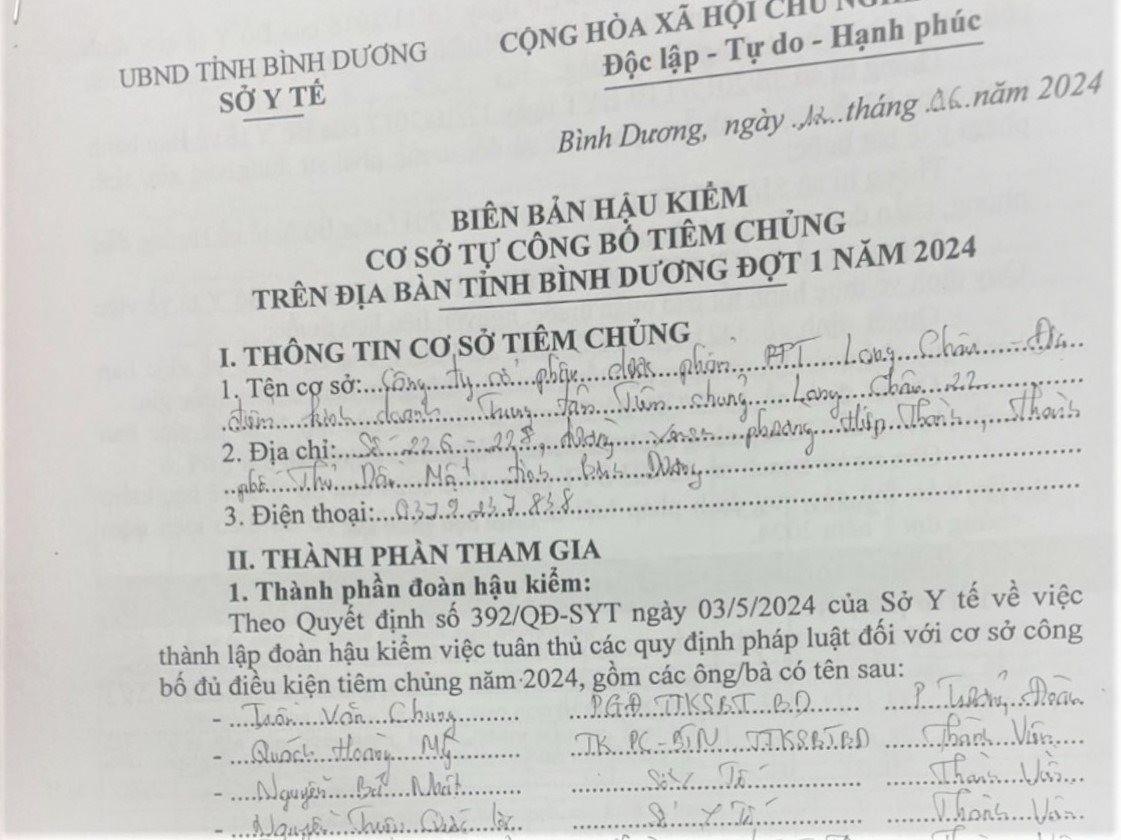 CỘNG HÒA XÃ HỘI CHỦ NGHĨA
UBND TỈNH BÌNH DƯƠNG
SỞ Y TẾ
Độc lập - Tự do - Hạnh phúc
Bình Dương, ngày tháng 06 năm 2024
BIÊN BẢN HẬU KIỂM
CƠ SỞ TỰ CÔNG BỐ TIÊM CHỦNG
TRÊN ĐỊA BÀN TỈNH BÌNH DƯƠNG ĐỢT 1 NĂM 2024
I. THÔNG TIN CƠ SỞ TIÊM CHỦNG
1. Tên cơ sở: Công ty cổ phần dược phẩm FPT Long Châu - Địa
điểm kinh doanh Trung tâm Tiêm chủng Long Châu 22
2. Địa chỉ: Số 226-228, đường phường Hiệp Thành, Thành
phố Thủ Dầu Một tỉnh Bình Dương
3. Điện thoại: 0379.237.838
II. THÀNH PHẦN THAM GIA
1. Thành phần đoàn hậu kiểm:
Theo Quyết định số 392/QĐ-SYT ngày 03/5/2024 của Sở Y tế về việc
thành lập đoàn hậu kiểm việc tuân thủ các quy định pháp luật đối với cơ sở công
bố đủ điều kiện tiêm chủng năm 2024, gồm các ông/bà có tên sau:
- Trần Văn Chung PGĐ TTKSBT BD P Trưởng Đoàn
- Quách Hoàng Mỹ TK PC-BTN TTKSBT BD Thành Viên
- Nguyễn Bá Nhất Sở Y Tế Thành Viên
- Nguyễn Sở Y Tế Thành Viên